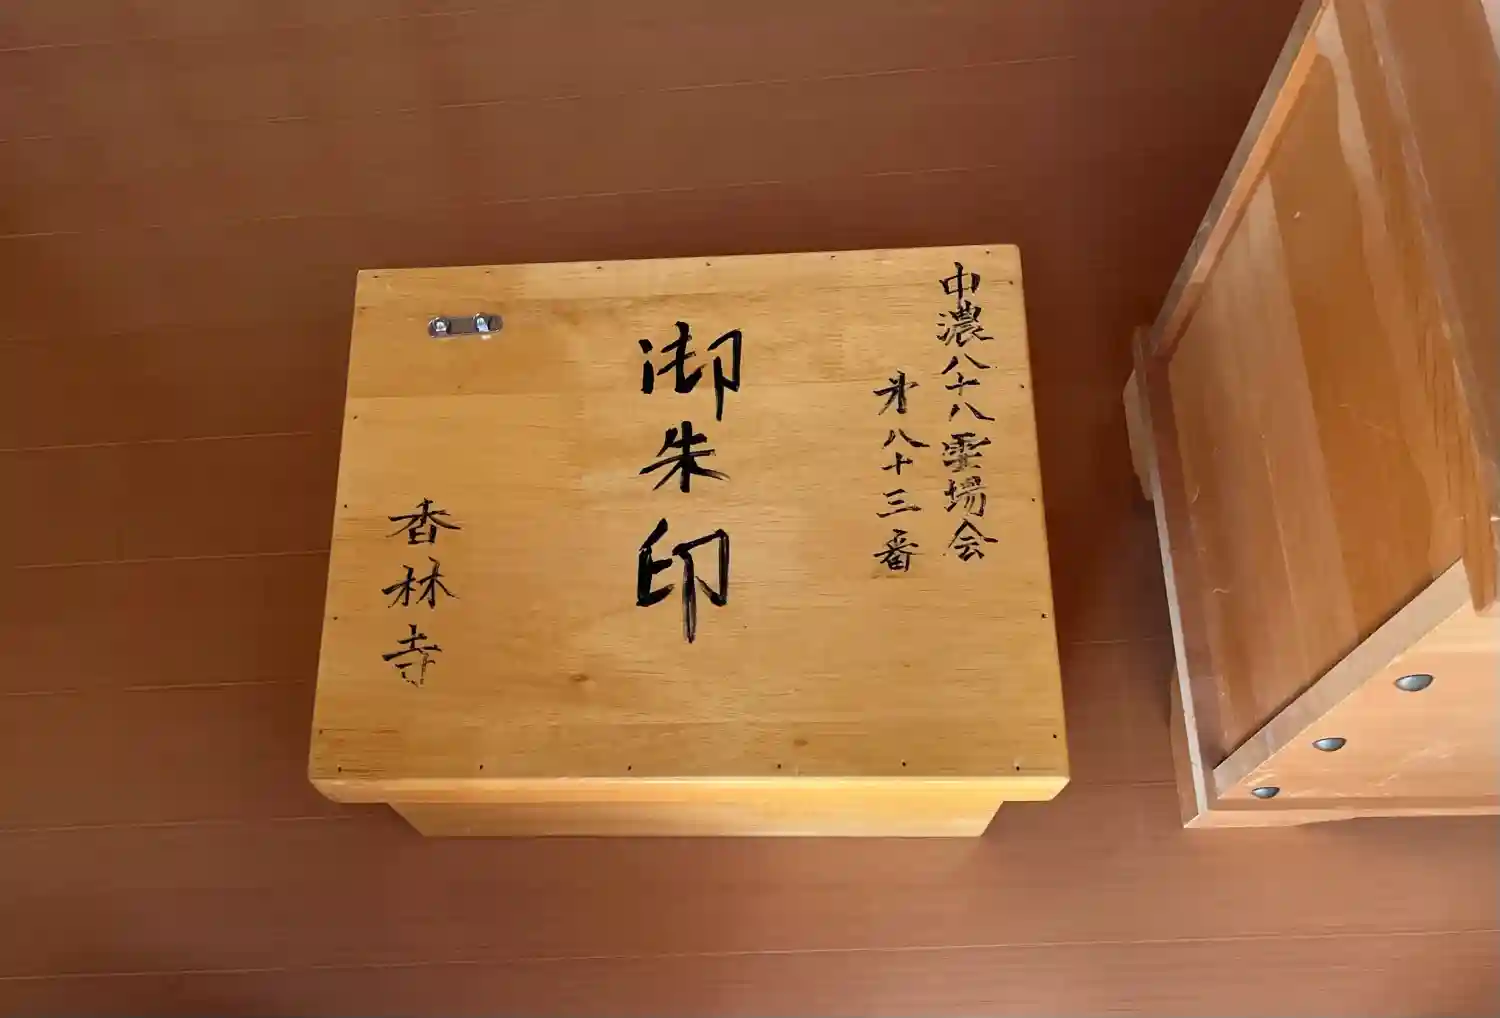 中濃八十八霊場会
第八十三番
御朱印
香林寺